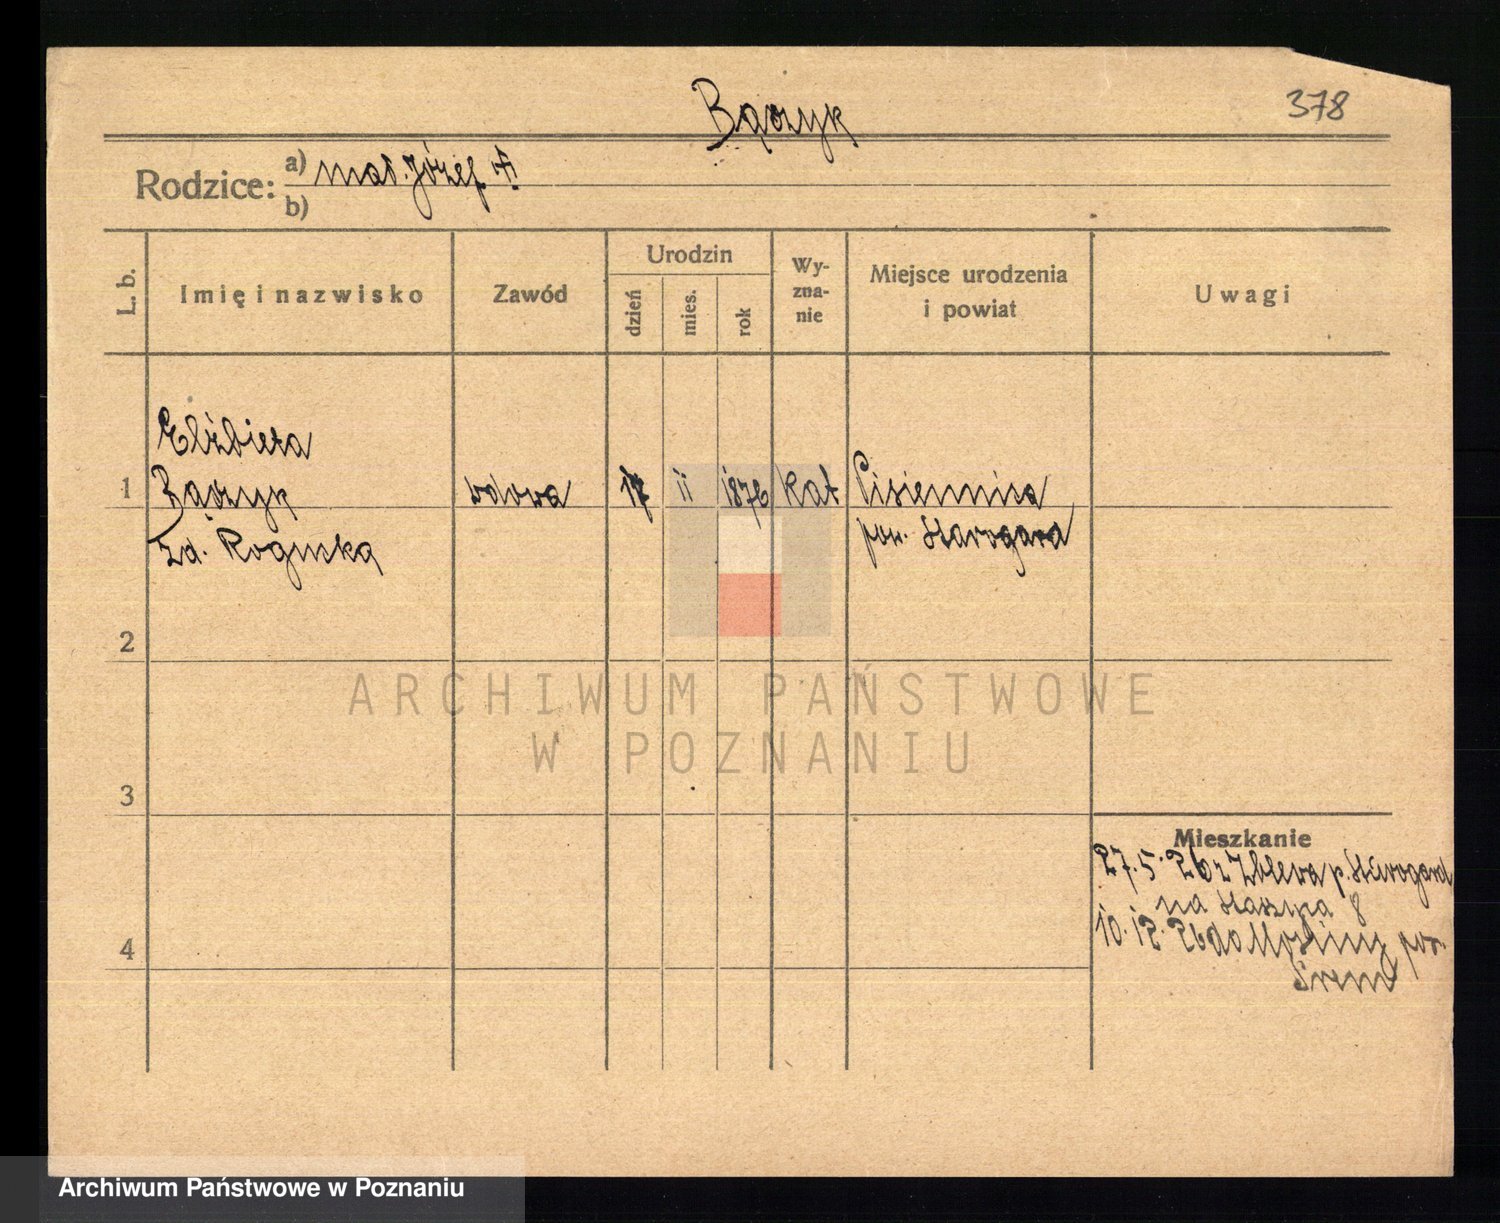 378
Bączyk
Rodzice: a) mał. Józef
b)
L. b.
Imię i nazwisko
Zawód
Urodzin
dzień
mies.
rok
Wy-
zna-
nie
Miejsce urodzenia
i powiat
Uwagi
Elżbieta
1 Bączyk wdowa 17 ii 1876 kat
zd. Rogińska pow. Starogard
2
ARCHIWUM PAŃSTWOWE
W POZNANIU
3
Mieszkanie
27.5.26 z Zblewa p. Starogard
na Staszyca 8
4 10.12.26 do pow.
Śrem
Archiwum Państwowe w Poznaniu